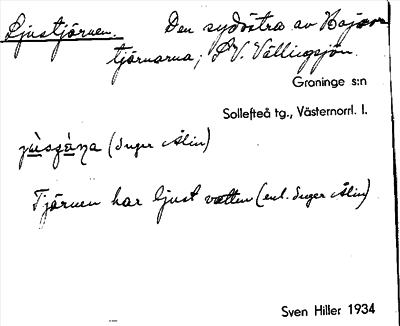 Ljustjärnen. Den sydöstra av Bojarnstjärnarna; S.V. Vällingsjön.
Graninge s:n
Sollefteå tg., Västernorrl. l.
(Inger Ålin)
Tjärnen har ljust vatten (enl. Inger Ålin)
Sven Hiller 1934